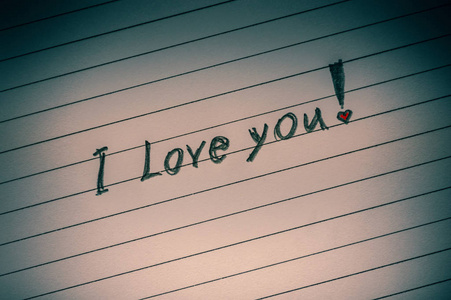 I Love you!